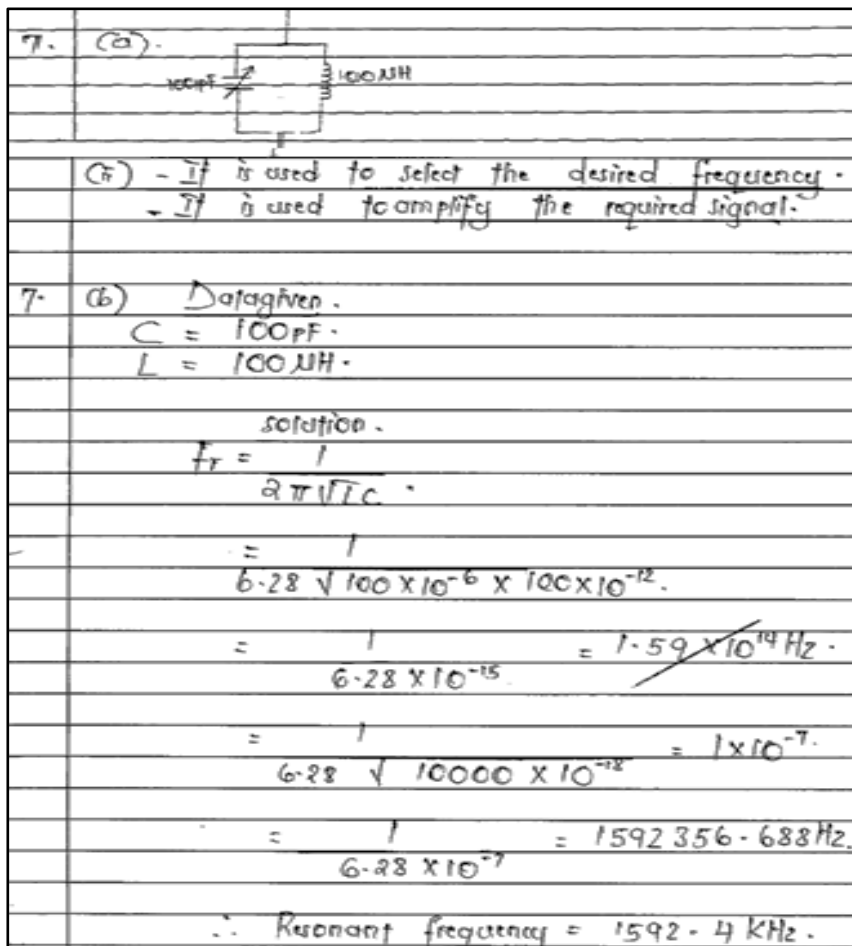 7. (a).
100pF 100μH
(ii) - It is used to select the desired frequency.
- It is used to amplify the required signal.
7. (b) Datagiven.
C = 100pF.
L = 100μH.
solution.
fr = 1
2π√LC .
= 1
6.28 √ 100 × 10⁻⁶ × 100 × 10⁻¹².
= 1 = 1.59 × 10¹⁴ Hz.
6.28 × 10⁻¹⁵
= 1 = 1 × 10⁻⁷.
6.28 √ 10000 × 10⁻¹⁸
= 1 = 1592 356.688 Hz.
6.28 × 10⁻⁷
∴ Resonant frequency = 1592.4 KHz.